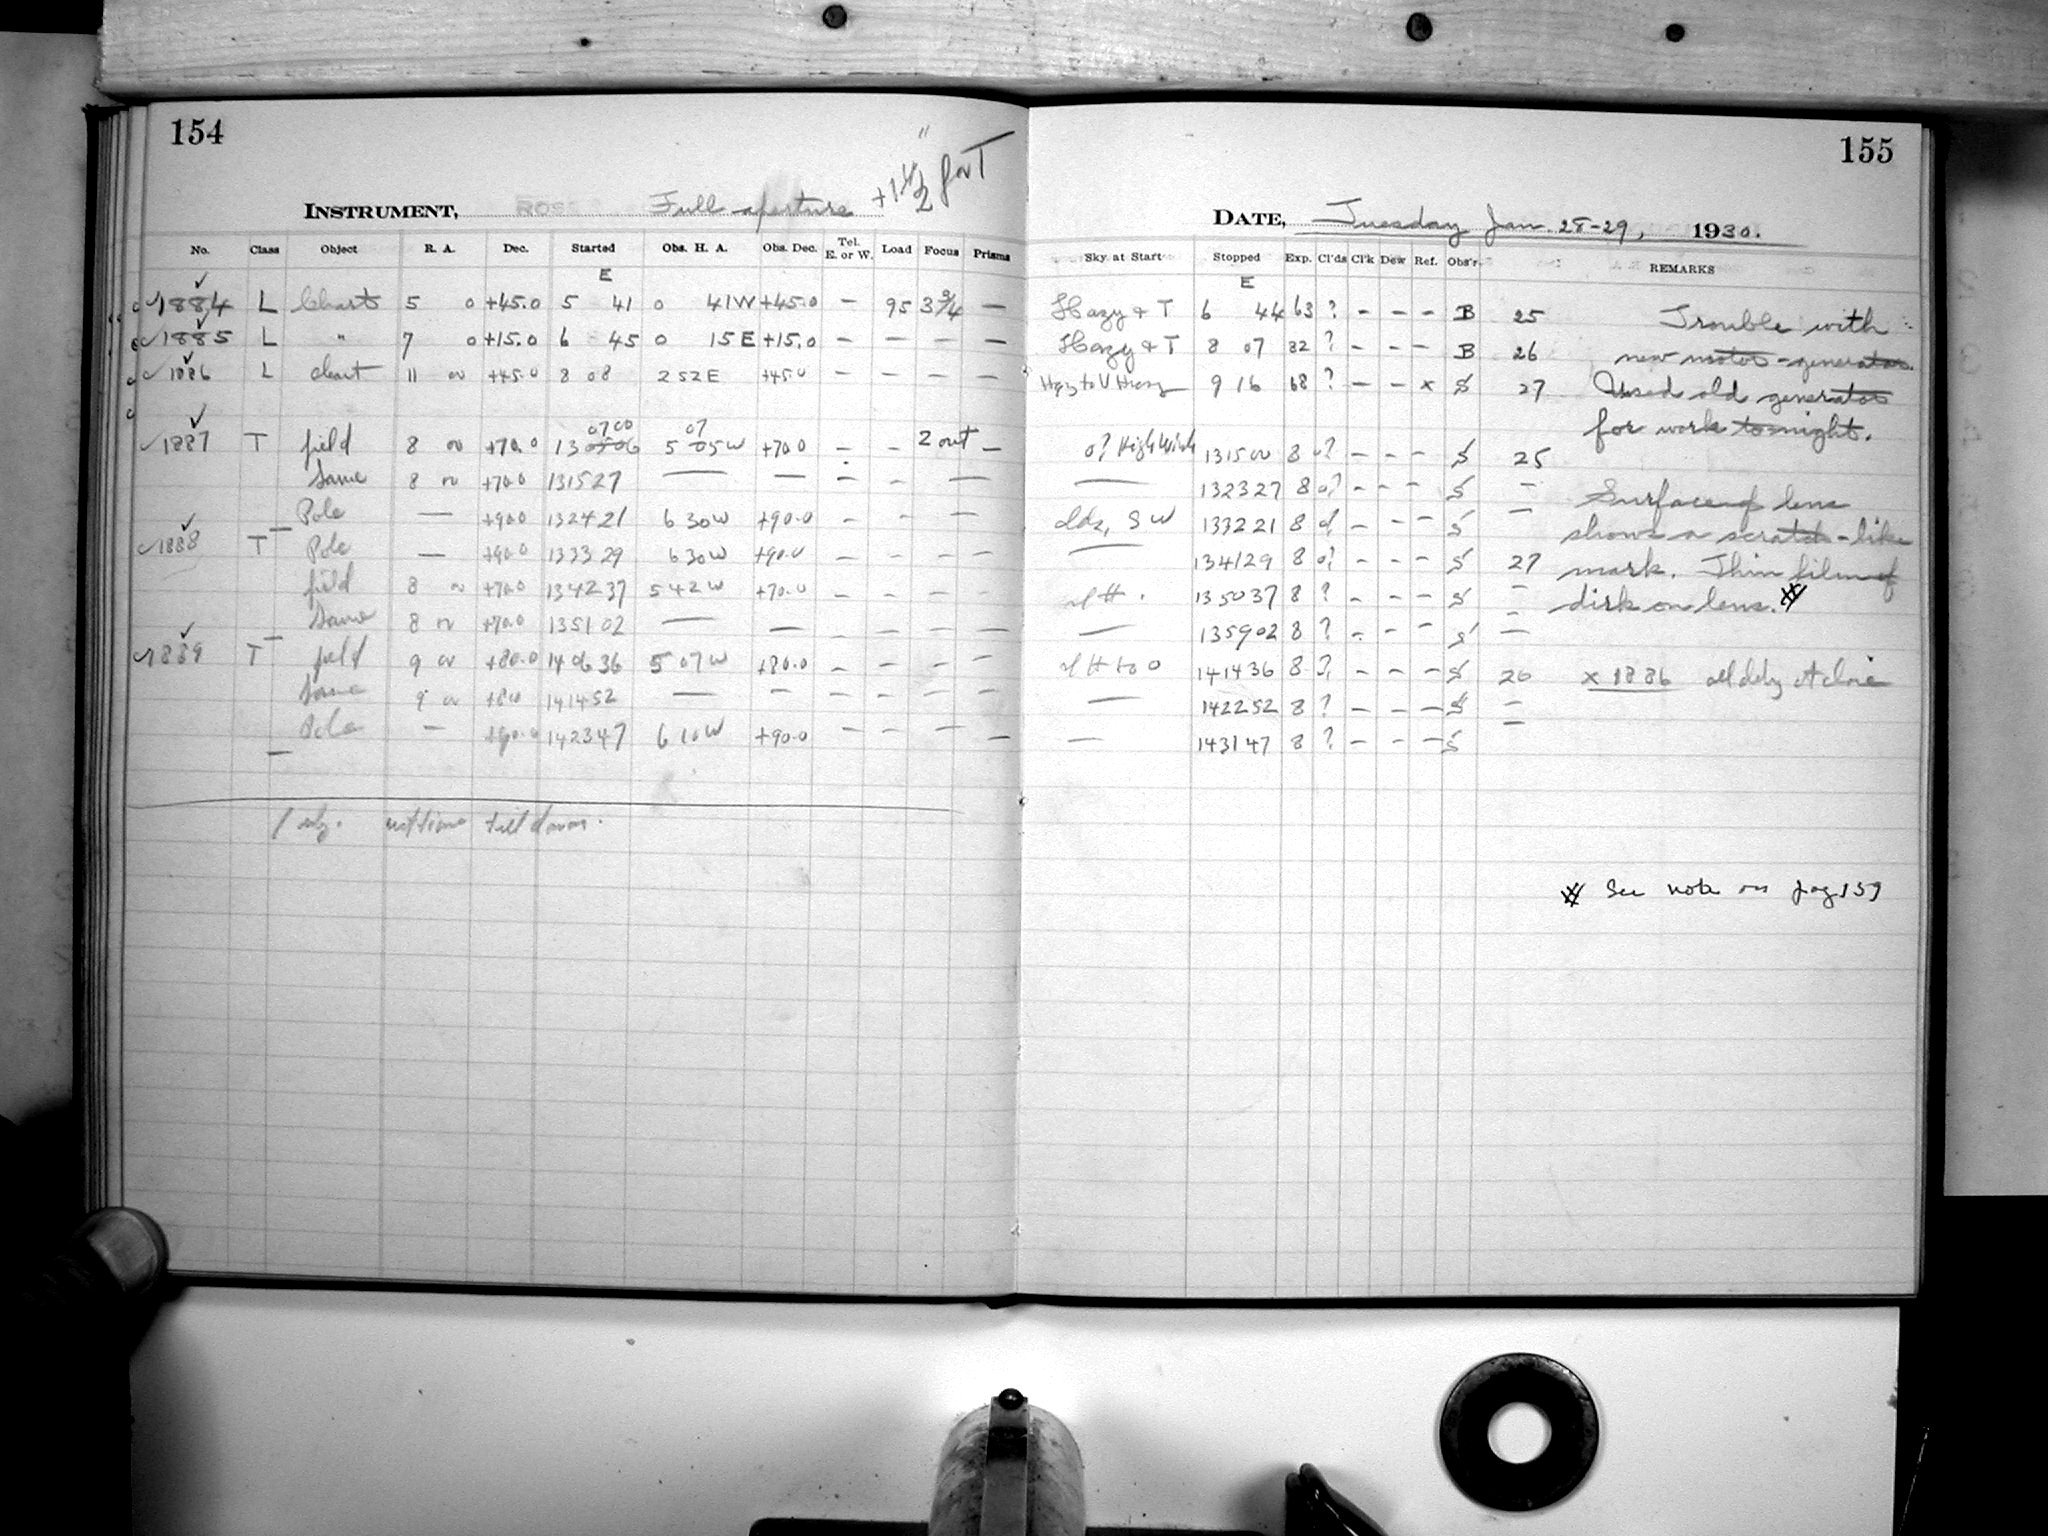 154
" +1 1/2 for T
INSTRUMENT, ROSS Full aperture
No. Class Object R. A. Dec. Started Obs. H. A. Obs. Dec. Tel. E. or W. Load Focus Prisms
E
1884 L Chart 5 0 +45.0 5 41 0 41W +45.0 — 95 3 3/4 —
1885 L " 7 0 +15.0 6 45 0 15E +15.0 — — — —
1886 L chart 11 00 +45.0 8 08 2 52E +45.0 — — — —
0700 07
1887 T field 8 00 +70.0 13 0506 5 05W +70.0 — — 2 out —
Same 8 00 +70.0 131527 — — — — —
Pole — +90.0 132421 6 30W +90.0 — — —
1888 T Pole — +90.0 133329 6 30W +90.0 — — — —
field 8 00 +70.0 134237 5 42W +70.0 — — — —
Same 8 00 +70.0 135102 — — — — — —
1889 T field 9 00 +80.0 140636 5 07W +80.0 — — — —
Same 9 00 +80.0 141452 — — — — — —
Pole — +90.0 142347 6 10W +90.0 — — — —
till dawn.
155
DATE, Tuesday Jan. 28-29, 1930.
Sky at Start Stopped Exp. Cl'ds Cl'k Dew Ref. Obs'r. REMARKS
E
Hazy & T 6 44 63 ? — — — B 25 Trouble with
Hazy & T 8 07 82 ? — — — B 26 new motor-generator.
Hazy to V Hazy 9 16 68 ? — — x S 27 Used old generator
for work tonight.
0? High Wind 131500 8 0? — — — S 25
— 132327 8 0? — — — S — Surface of lens
clds, SW 133221 8 0? — — — S — shows a scratch-like
— 134129 8 0? — — — S 27 mark. Thin film of
135037 8 ? — — — S — dirk on lens. #
— 135902 8 ? — — — S —
141436 8 ? — — — S 26 x 1886
— 142252 8 ? — — — S —
— 143147 8 ? — — — S —
# See note on pag 159